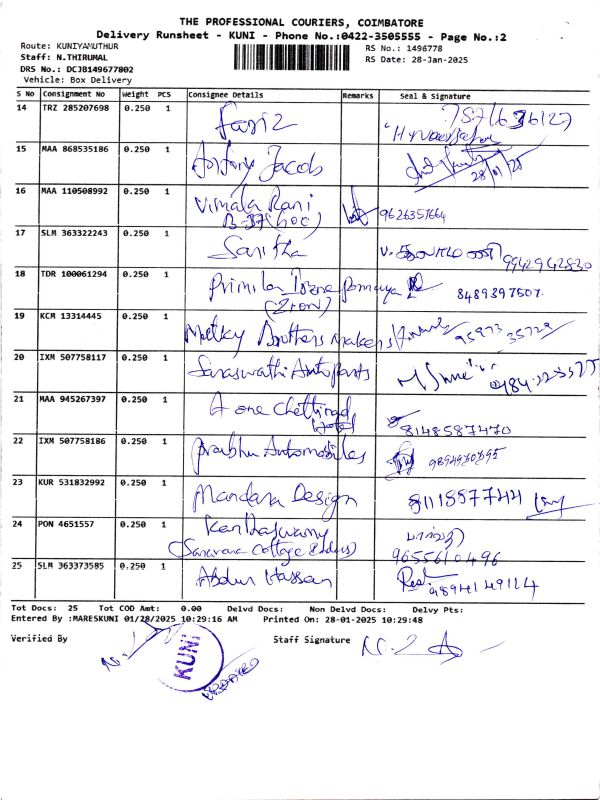 THE PROFESSIONAL COURIERS, COIMBATORE
Delivery Runsheet - KUNI - Phone No.:0422-3505555 - Page No.:2
Route: KUNIYAMUTHUR
RS No.: 1496778
Staff: N.THIRUMAL
RS Date: 28-Jan-2025
DRS No.: DCJB149677802
Vehicle: Box Delivery
S No Consignment No Weight PCS Consignee Details Remarks Seal & Signature
14 TRZ 285207698 0.250 1 Fariz
15 MAA 868535186 0.250 1 Antony Jacob 28/01/25
16 MAA 110508992 0.250 1 Vimala Rani 9626351664
B-37 (hoc)
17 SLM 363322243 0.250 1 Saritha 9942942830
18 TDR 100061294 0.250 1 Primila Irene Ponnaya 8489397507.
(Zion)
19 KCM 13314445 0.250 1 Motky Brothers Makers 95973 35729
20 IXM 507758117 0.250 1 Saraswathi Auto Parts
21 MAA 945267397 0.250 1 A one Chettinad 8148587470
Hotel
22 IXM 507758186 0.250 1 Prabhu Automobiles
23 KUR 531832992 0.250 1 Mandara Design 8111857744
24 PON 4651557 0.250 1 Kandaswamy
(Saravana Cottage Enders) 9655610496
25 SLM 363373585 0.250 1 Abdur Hassan 9894149114
Tot Docs: 25 Tot COD Amt: 0.00 Delvd Docs: Non Delvd Docs: Delvy Pts:
Entered By :MARESKUNI 01/28/2025 10:29:16 AM Printed On: 28-01-2025 10:29:48
Verified By Staff Signature
KUNI